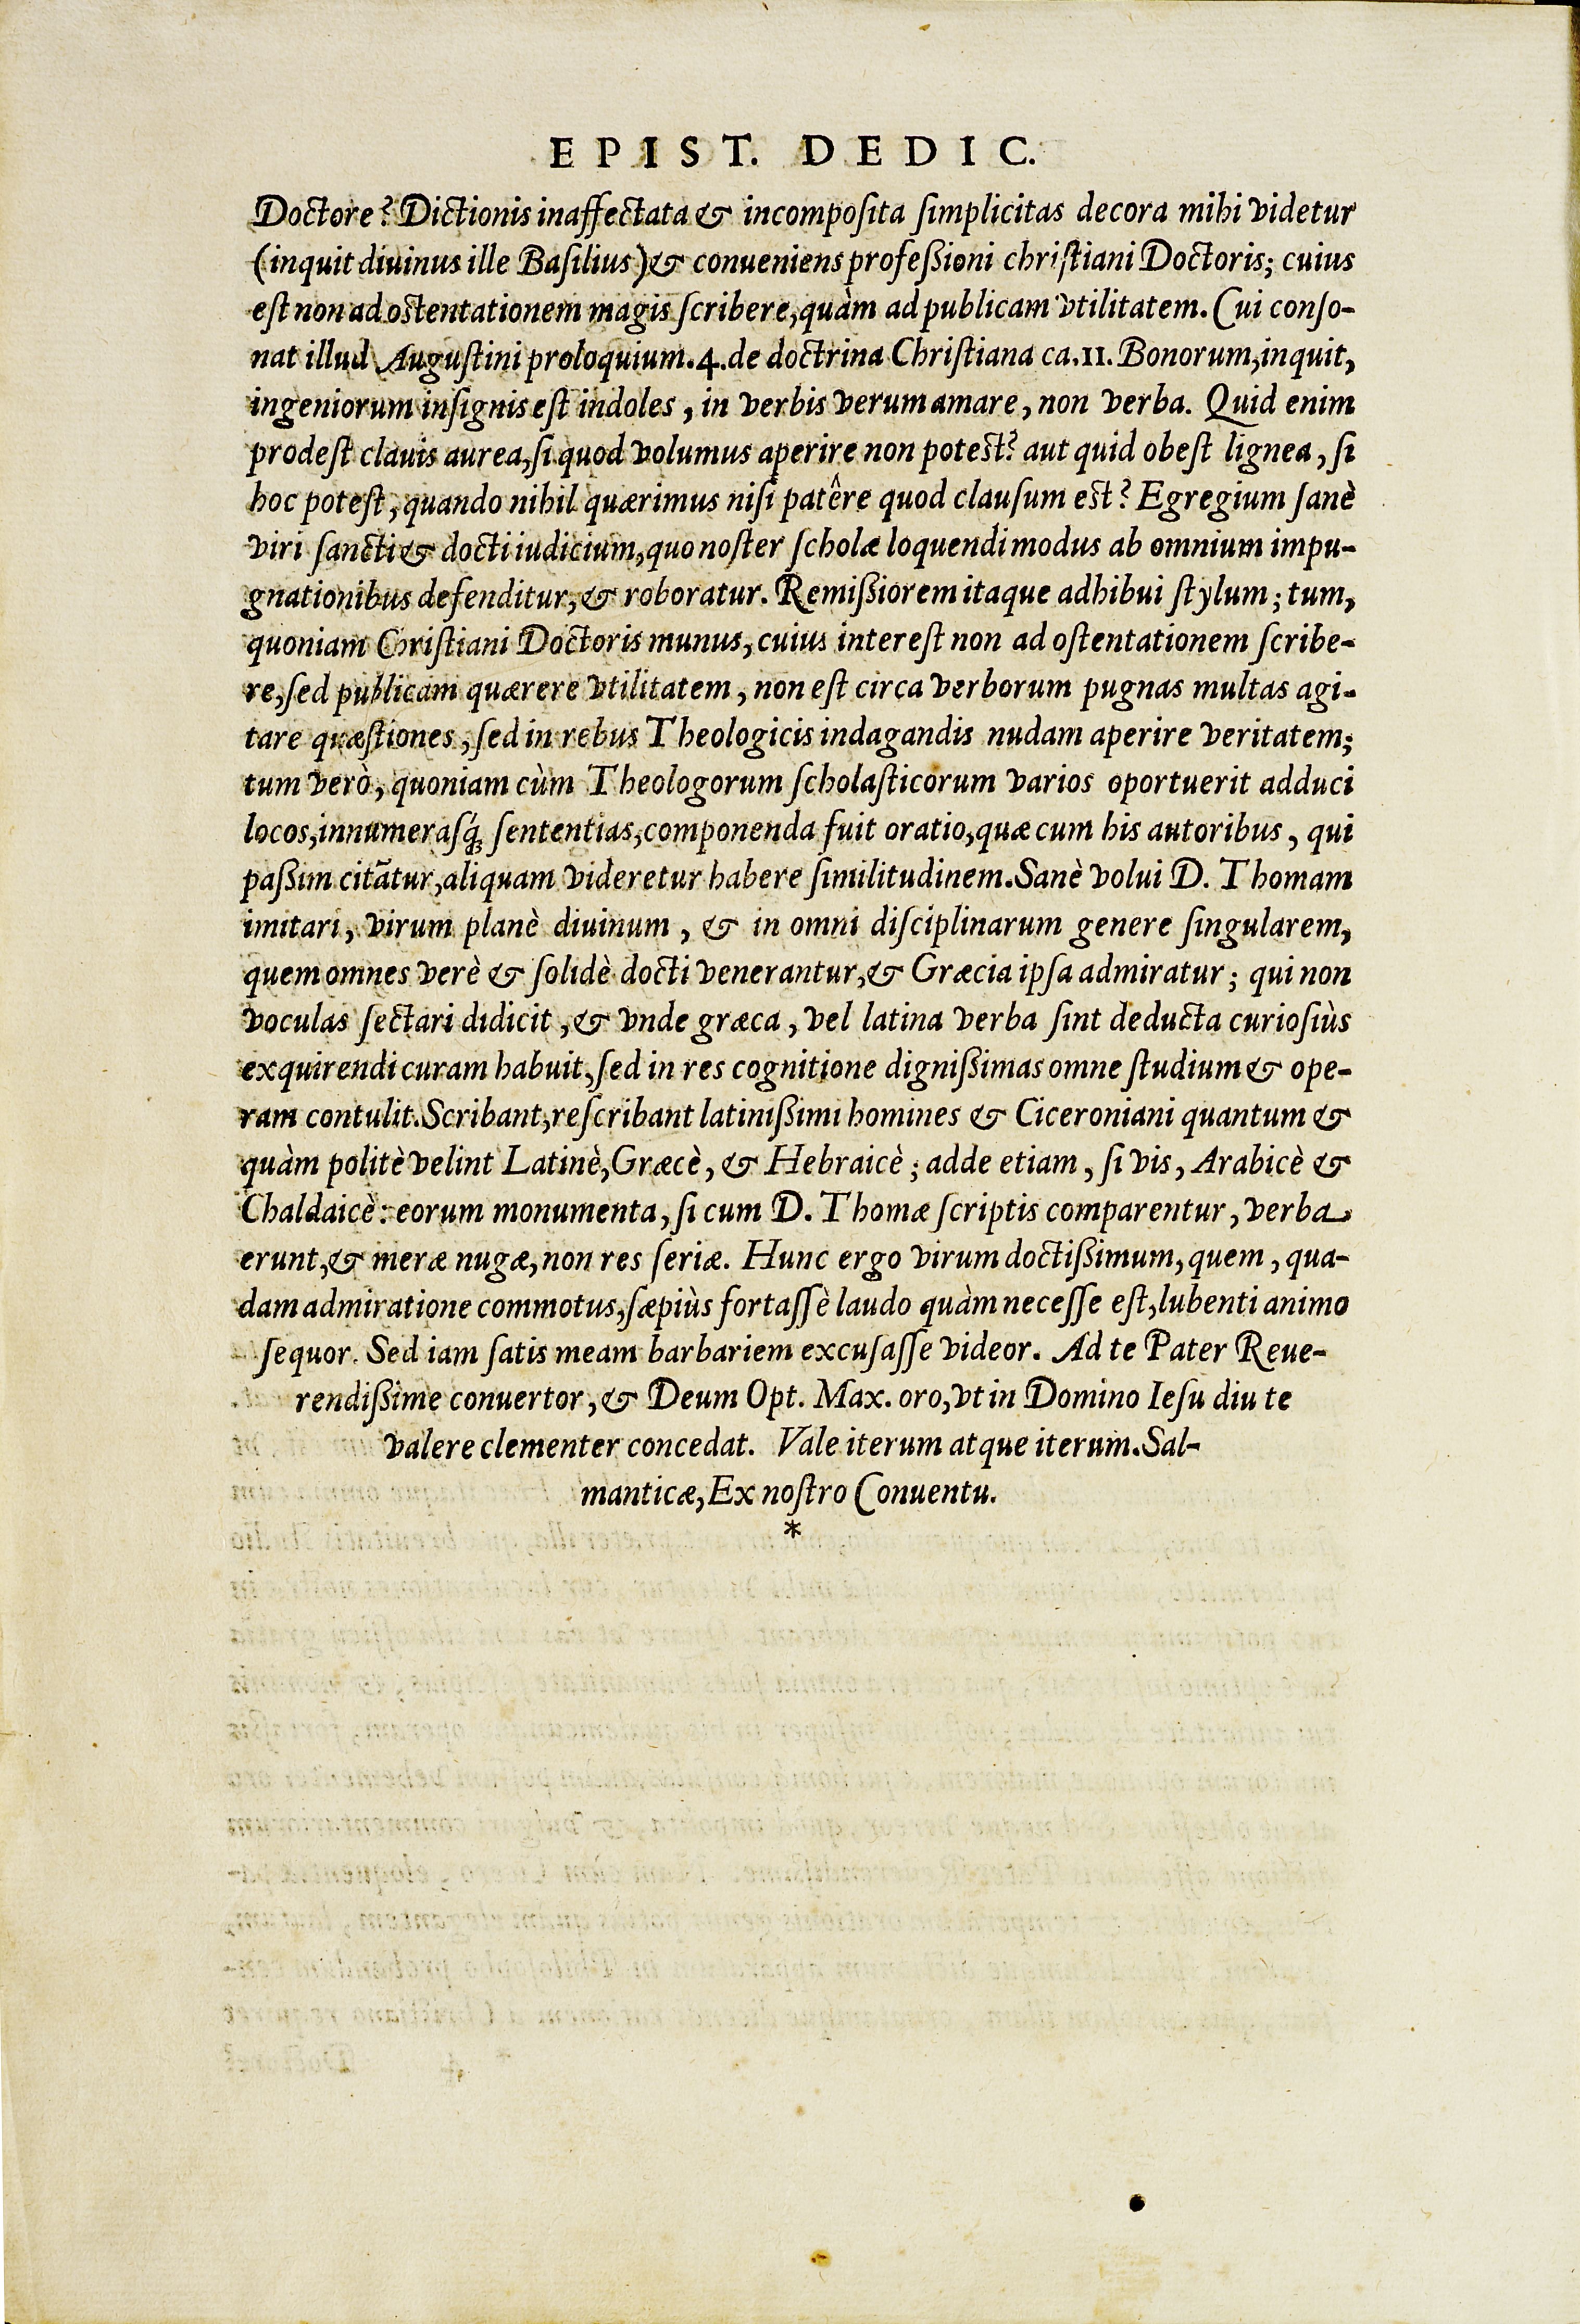 EPIST. DEDIC.
Doctore? Dictionis inaffectata & incompoſita ſimplicitas decora mihi videtur
(inquit diuinus ille Baſilius) & conueniens profeßioni chriſtiani Doctoris; cuius
eſt non ad oſtentationem magis ſcribere, quàm ad publicam vtilitatem. Cui conſo-
nat illud Auguſtini proloquium. 4. de doctrina Chriſtiana ca. 11. Bonorum, inquit,
ingeniorum inſignis eſt indoles, in verbis verum amare, non verba. Quid enim
prodeſt clauis aurea, ſi quod volumus aperire non poteſt? aut quid obeſt lignea, ſi
hoc poteſt, quando nihil quærimus niſi patêre quod clauſum eſt? Egregium ſanè
viri ſancti & docti iudicium, quo noſter ſcholæ loquendi modus ab omnium impu-
gnationibus defenditur, & roboratur. Remißiorem itaque adhibui ſtylum; tum,
quoniam Chriſtiani Doctoris munus, cuius intereſt non ad oſtentationem ſcribe-
re, ſed publicam quærere vtilitatem, non eſt circa verborum pugnas multas agi-
tare quæſtiones, ſed in rebus Theologicis indagandis nudam aperire veritatem;
tum verò, quoniam cùm Theologorum ſcholaſticorum varios oportuerit adduci
locos, innumeraſq́; ſententias, componenda fuit oratio, quæ cum his autoribus, qui
paßim citātur, aliquam videretur habere ſimilitudinem. Sanè volui D. Thomam
imitari, virum planè diuinum, & in omni diſciplinarum genere ſingularem,
quem omnes verè & ſolidè docti venerantur, & Græcia ipſa admiratur; qui non
voculas ſectari didicit, & vnde græca, vel latina verba ſint deducta curioſiùs
exquirendi curam habuit, ſed in res cognitione dignißimas omne ſtudium & ope-
ram contulit. Scribant, reſcribant latinißimi homines & Ciceroniani quantum &
quàm politè velint Latinè, Græcè, & Hebraicè; adde etiam, ſi vis, Arabicè &
Chaldaicè: eorum monumenta, ſi cum D. Thomæ ſcriptis comparentur, verba
erunt, & meræ nugæ, non res ſeriæ. Hunc ergo virum doctißimum, quem, qua-
dam admiratione commotus, ſæpiùs fortaſſè laudo quàm neceſſe eſt, lubenti animo
ſequor. Sed iam ſatis meam barbariem excuſaſſe videor. Ad te Pater Reue-
rendißime conuertor, & Deum Opt. Max. oro, vt in Domino Ieſu diu te
valere clementer concedat. Vale iterum atque iterum. Sal-
manticæ, Ex noſtro Conuentu.
*